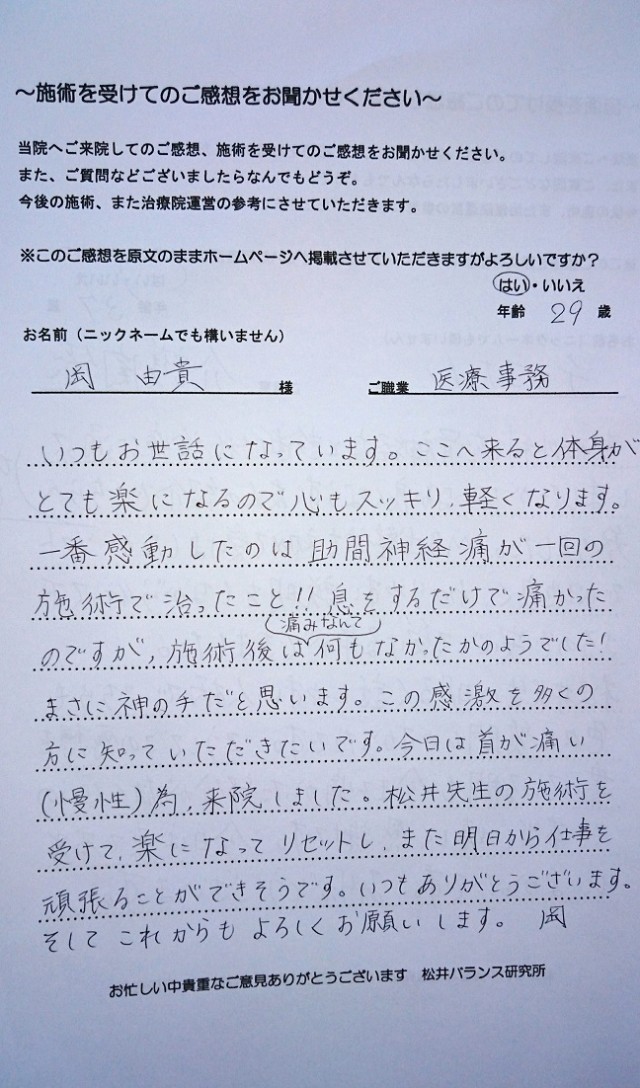 ～施術を受けてのご感想をお聞かせください～
当院へご来院してのご感想、施術を受けてのご感想をお聞かせください。
また、ご質問などございましたらなんでもどうぞ。
今後の施術、また治療院運営の参考にさせていただきます。
※このご感想を原文のままホームページへ掲載させていただきますがよろしいですか？
はい・いいえ
年齢 29 歳
お名前（ニックネームでも構いません）
岡 由貴 様 ご職業 医療事務
いつもお世話になっています。ここへ来ると体身が
とても楽になるので心もスッキリ、軽くなります。
一番感動したのは助間神経痛が一回の
施術で治ったこと!!息をするだけで痛かった
(痛みなんて)
のですが、施術後は何もなかったかのようでした!
まさに神の手だと思います。この感激を多くの
方に知っていただきたいです。今日は首が痛い
(慢性)為、来院しました。松井先生の施術を
受けて、楽になってリセットし、また明日から仕事を
頑張ることができそうです。いつもありがとうございます。
そしてこれからもよろしくお願いします。 岡
お忙しい中貴重なご意見ありがとうございます 松井バランス研究所